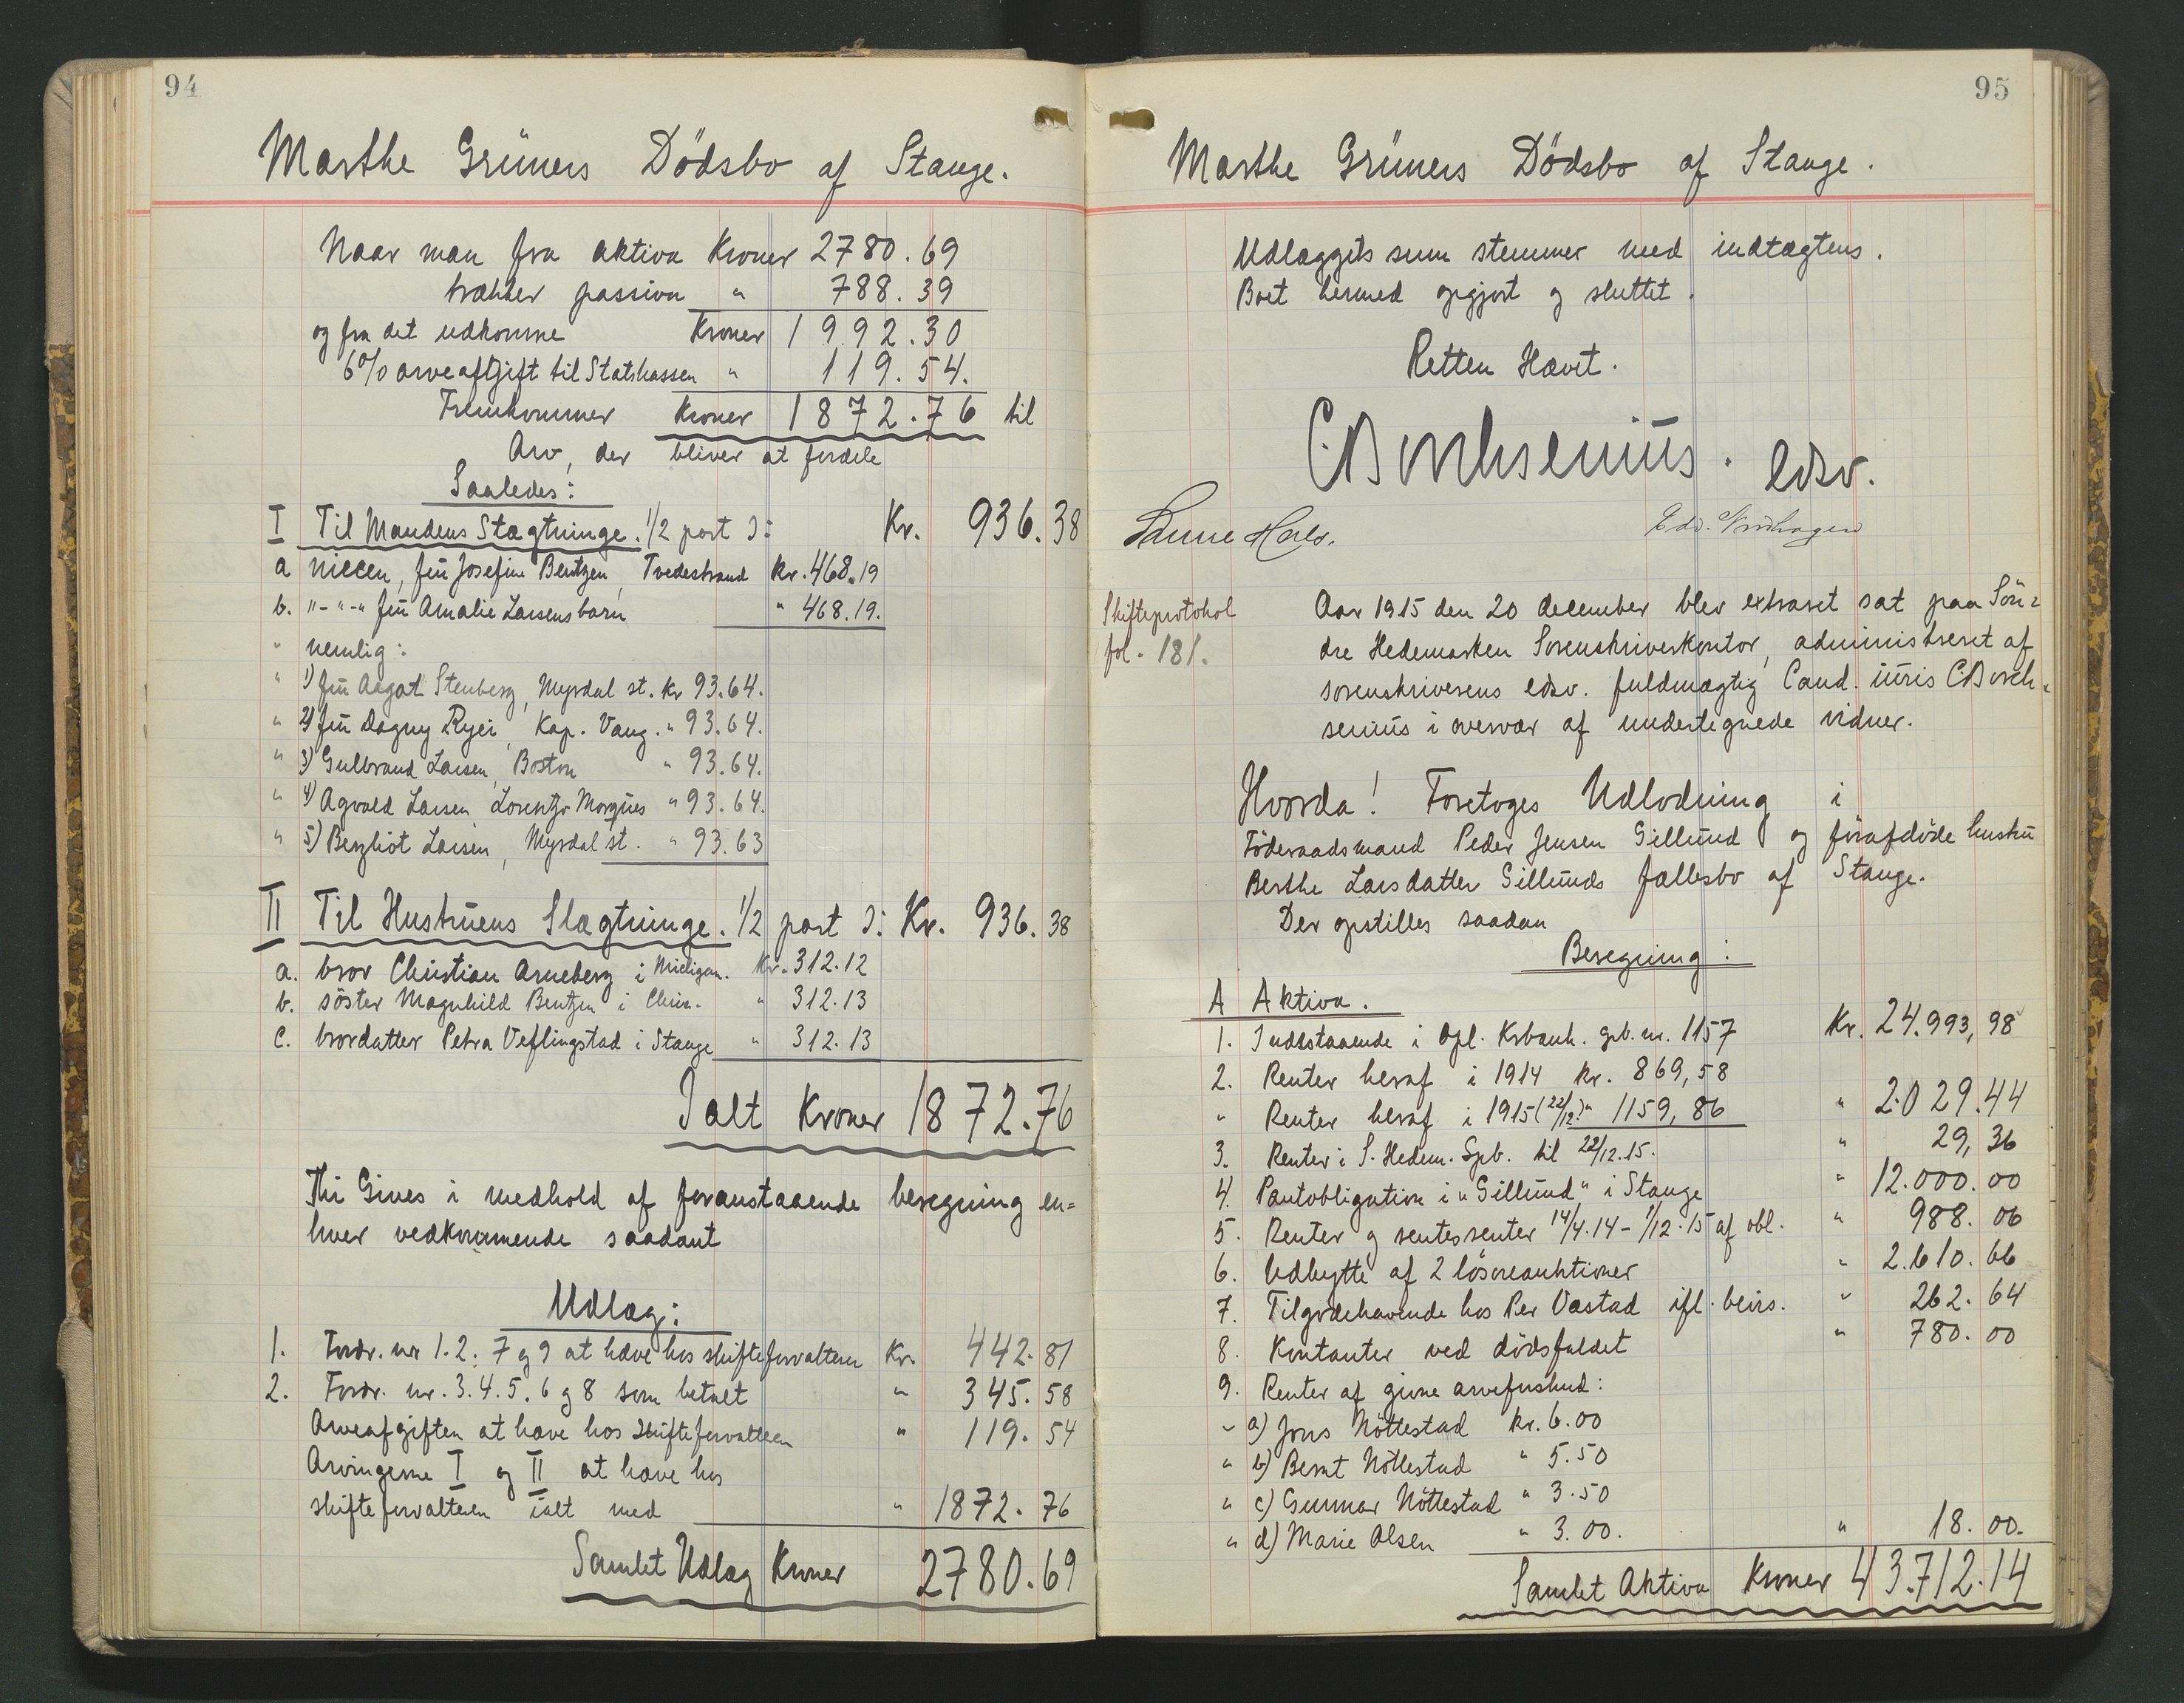 94
Marthe Grüners Dödsbo af Stange.
Naar man fra aktiva Kroner 2780.69
trækker passiva " 788.39
og fra det udkomne Kroner 1992.30
6% arveafgift til Statskassen " 119.54.
Fremkommer Kroner 1872.76 til
Arv, der bliver at fordele
Saaledes:
I Til Mandens Slægtninge. 1/2 part ɔ: Kr. 936.38
a niecen, frü Josefine Bentzen, Tvedestrand Kr. 468.19
b. "-"-" frü Amalie Larsens barn " 468.19.
" nemlig:
" 1) frü Aagot Stenberg, Myrdal st. Kr 93.64.
" 2) frü Dagny Ryei, Kap. Vang. " 93.64.
" 3) Gulbrand Larsen, Boston " 93.64.
" 4) Agvald Larsen Lorentzo Morqües " 93.64.
" 5) Bergliot Larsen, Myrdal st. " 93.63
II Til Hustrüens Slægtninge. 1/2 part ɔ: Kr. 936.38
a. bror Christian Arneberg i Michigan. Kr. 312.12
b. söster Magnhild Bentzen i Chria. " 313.13
c. brordatter Petra Veflingstad i Stange " 312.13
Ialt Kroner 1872.76
Thi Gives i medhold af foranstaaende beregning en=
hver vedkommende saadant
Udlæg:
1. Fordr. nr 1. 2. 7 og 9 at hæve hos skifteforvalteren Kr. 442.81
2. Fordr. nr. 3. 4. 5. 6 og 8 som betalt " 345.58
Arveafgiften at hæve hos Skifteforvalteren " 119.54
Arvingerne I og II at hæve hos
skifteforvalteren ialt med " 1872.76
Samlet Udlæg Kroner 2780.69
95
Marthe Grüners Dödsbo af Stange.
Udlæggets sum stemmer med indtægtens.
Boet hermed opgjort og sluttet.
Retten Hævet.
C Borchsenius. edsv.
Hals.
Skifteprotokol
fol. 181.
Aar 1915 den 20 december blev extraret sat paa Sön=
dre Hedemarken Sorenskriverkontor, administreret af
sorenskriverens edsv. fuldmægtig Cand. iüris C Borch=
senius i overvær af undertegnede vidner.
Hvorda! Foretoges Udlodning i
Föderaadsmand Peder Jensen Gillünd og förafdöde hustrü
Berthe Larsdatter Gillünds fællesbo af Stange.
Der opstilles saadan
Beregning:
A Aktiva.
1. Indestaaende i Opl. Krbank. spb. nr. 1157 Kr. 24.993,98
2. Renter heraf i 1914 Kr. 869,58
" Renter heraf i 1915 (22/12) " 1159,86 " 2.029.44
3. Renter i S. Hedem. Spb. til 22/12.15. " 29,36
4. Pantobligation i "Gillünd" i Stange " 12.000.00
5. Renter og rentesrenter 14/4.14 - 1/12.15 af obl. " 988.06
6. Udbytte af 2 lösöreauktioner " 2.610.66
7. Tilgodehavende hos Per Vastad ifl. bevis. " 262.64
8. Kontanter ved dödsfaldet " 780.00
9. Renter af givne arveforskud:
" a) Jens Nöttestad Kr. 6.00
" b) Bernt Nöttestad " 5.50
" c) Gunnar Nöttestad " 3.50
" d) Marie Olsen " 3.00. " 18.00.
Samlet Aktiva Kroner 43.712.14